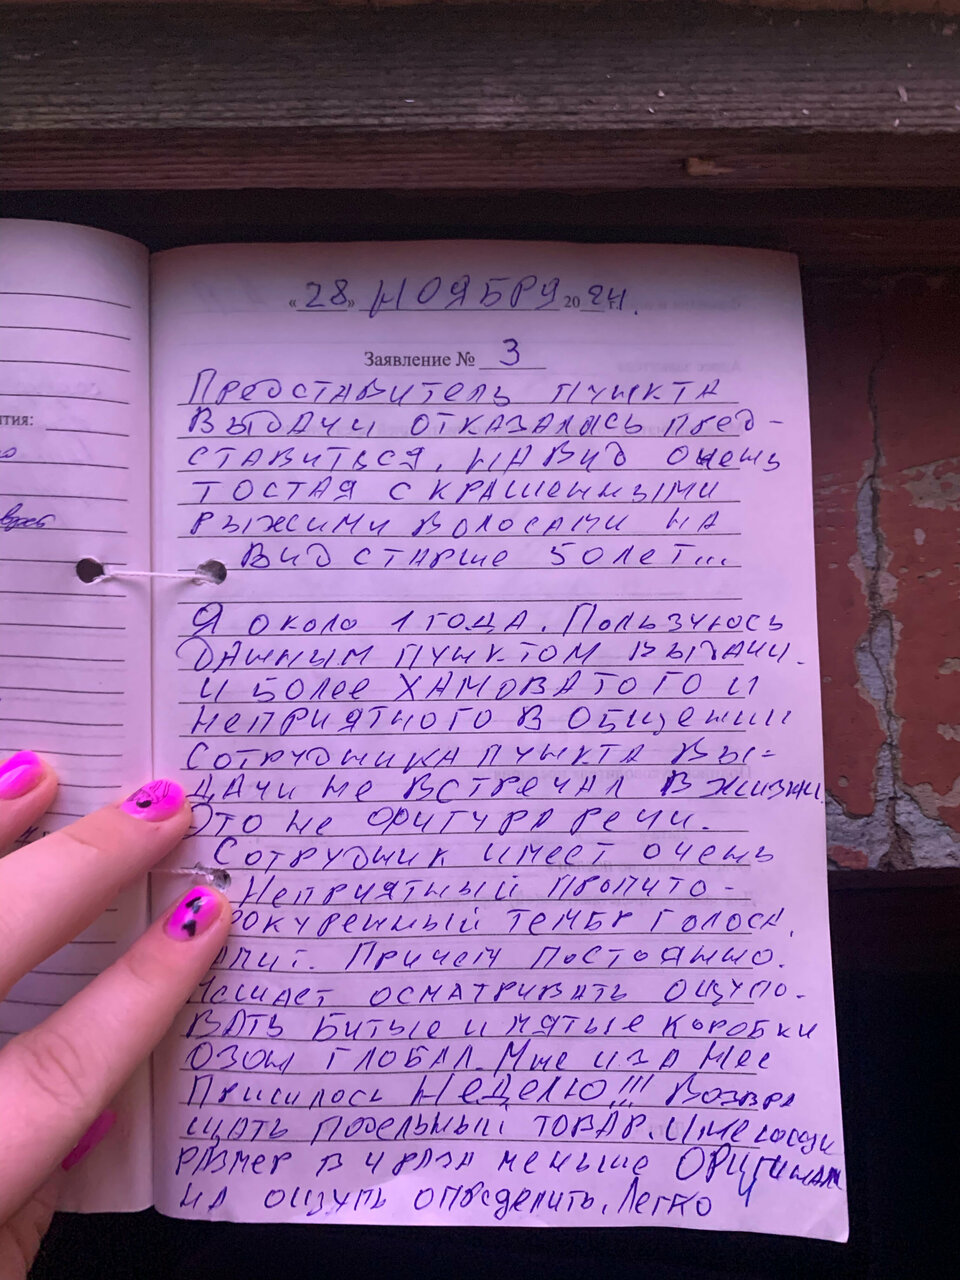 «28» НОЯБРЯ 2024 г.
Заявление № 3
ПРЕДСТАВИТЕЛЬ ПУНКТА
ВЫДАЧИ ОТКАЗАЛАСЬ ПРЕД-
СТАВИТЬСЯ, НА ВИД ОЧЕНЬ
ТОСТАЯ С КРАШЕННЫМИ
РЫЖИМИ ВОЛОСАМИ НА
ВИД СТАРШЕ 50 ЛЕТ...
Я ОКОЛО 1 ГОДА. ПОЛЬЗУЮСЬ
ДАННЫМ ПУНКТОМ ВЫДАЧИ.
И БОЛЕЕ ХАМОВАТОГО И
НЕПРИЯТНОГО В ОБЩЕНИИ
СОТРУДНИКА ПУНКТА ВЫ-
ДАЧИ НЕ ВСТРЕЧАЛ В ЖИЗНИ.
ЭТО НЕ ФИГУРА РЕЧИ.
СОТРУДНИК ИМЕЕТ ОЧЕНЬ
НЕПРИЯТНЫЙ ПРОПИТО-
РОКУРЕННЫЙ ТЕМБР ГОЛОСА.
ПРИЧЕМ ПОСТОЯННО.
МЕШАЕТ ОСМАТРИВАТЬ ОЩУПО-
ВАТЬ БИТЫЕ И МЯТЫЕ КОРОБКИ
ОЗОН ГЛОБАЛ. МНЕ ИЗ ЗА НЕЕ
ПРИШЛОСЬ НЕДЕЛЮ!!! ВОЗВРА
ЩАТЬ ПОДЕЛЬНЫЙ ТОВАР.
РАЗМЕР В 4 РАЗА МЕНЬШЕ ОРИГИНАЛ
НА ОЩУПЬ ОПРЕДЕЛИТЬ. ЛЕГКО
тия: